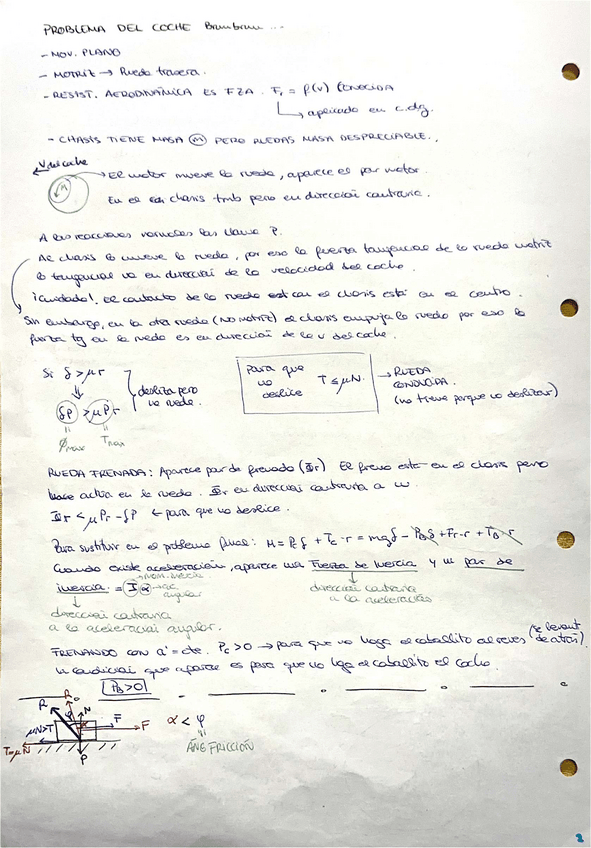 PROBLEMA DEL COCHE Brumbrum...
- MOV. PLANO
- MOTRIZ → Rueda trasera.
- RESIST. AERODINÁMICA ES FZA. Fr = f(v) CONOCIDA
↳ aplicado en c.d.g.
- CHASIS TIENE MASA M PERO RUEDAS MASA DESPRECIABLE.
V del coche
El motor mueve la rueda, aparece el par motor.
M
En el chasis tmb pero en dirección contraria.
A las reacciones normales las llama P.
Al chasis lo mueve la rueda, por eso la fuerza tangencial de la rueda motriz
la tangencial va en dirección de la velocidad del coche.
¡Cuidado!, el contacto de la rueda con el chasis está en el centro.
Sin embargo, en la otra rueda (NO MOTRIZ) el chasis empuja la rueda por eso la
fuerza tg en la rueda es en dirección de la v del coche.
Si δ > μr
desliza pero no rueda.
δP > μPr
φmax
Tmax
Para que no deslice T ≤ μN.
→ RUEDA CONDUCIDA.
(no tiene porque no deslizar)
RUEDA FRENADA: Aparece par de frenado (Φr) El freno está en el chasis pero
actúa en la rueda. Φr en dirección contraria a ω.
Φr < μPr - δP ← para que no deslice.
Para sustituir en el problema final: M = Pcδ + Tc·r = mgδ - PBδ + Fr·r + TB·r
Cuando existe aceleración, aparece una Fuerza de Inercia y un par de
inercia. = I α
→ mom. inercia
→ ac. angular
dirección contraria
a la aceleración
dirección contraria
a la aceleración angular.
FRENANDO CON a = cte. Pc > 0 → para que no haga el caballito al revés (se levant de atrás).
La condición que aparece es para que no haga el caballito el coche.
PB > 0
R
N
μN>T
F
F
T=μN
P
α < φ
ÁNG FRICCIÓN
2